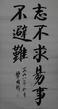 志不求易事
不避難